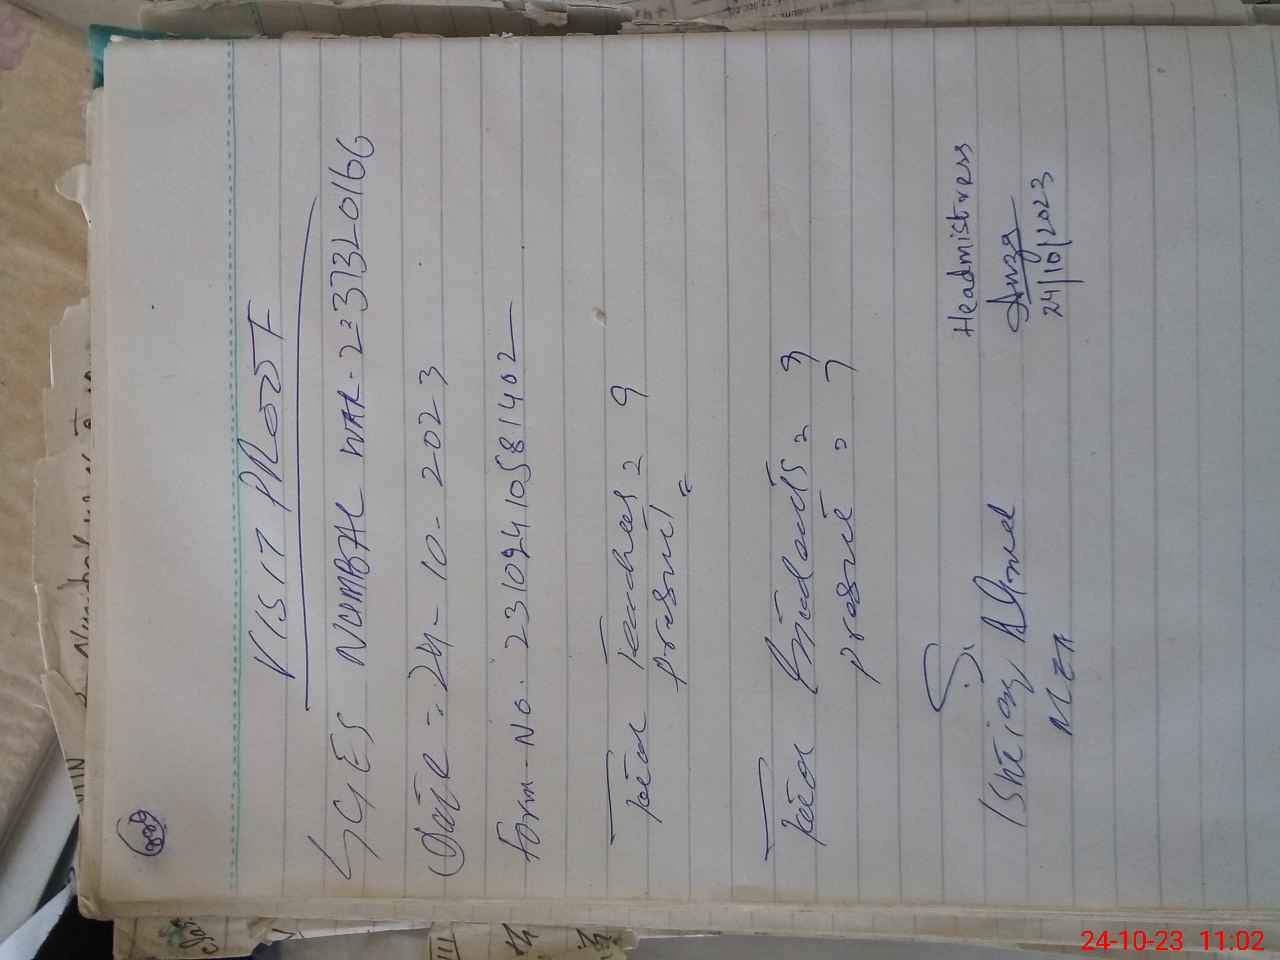 VISIT PROOF
GGES NUMBAL WAR - 237320166
Date :- 24 - 10 - 2023
Form - No. 23109410581402
Total Teachers = 9
Present "
Total Students = 9
present = 7
Headmistress
24/10/2023
Ishtiaq Ahmed
MEA
24-10-23 11:02